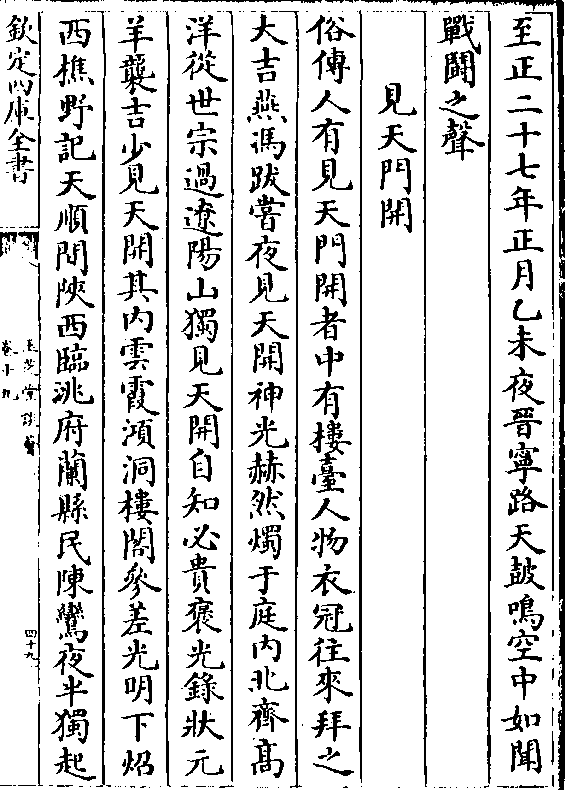 至正二十七年正月乙未夜晉寧路天鼓鳴空中如聞
戰鬭之聲
見天門開
俗傳人有見天門開者中有樓臺人物衣冠往來拜之
大吉燕馮跋嘗夜見天開神光赫然燭于庭内北齊髙
洋從世宗過遼陽山獨見天開自知必貴褒光錄狀元
羊襲吉少見天開其内雲霞澒洞樓閣參差光明下炤
西樵野記天順間陜西臨洮府蘭縣民陳鸞夜半獨起
欽定四庫全書
玉芝堂談薈
卷十九
四十九